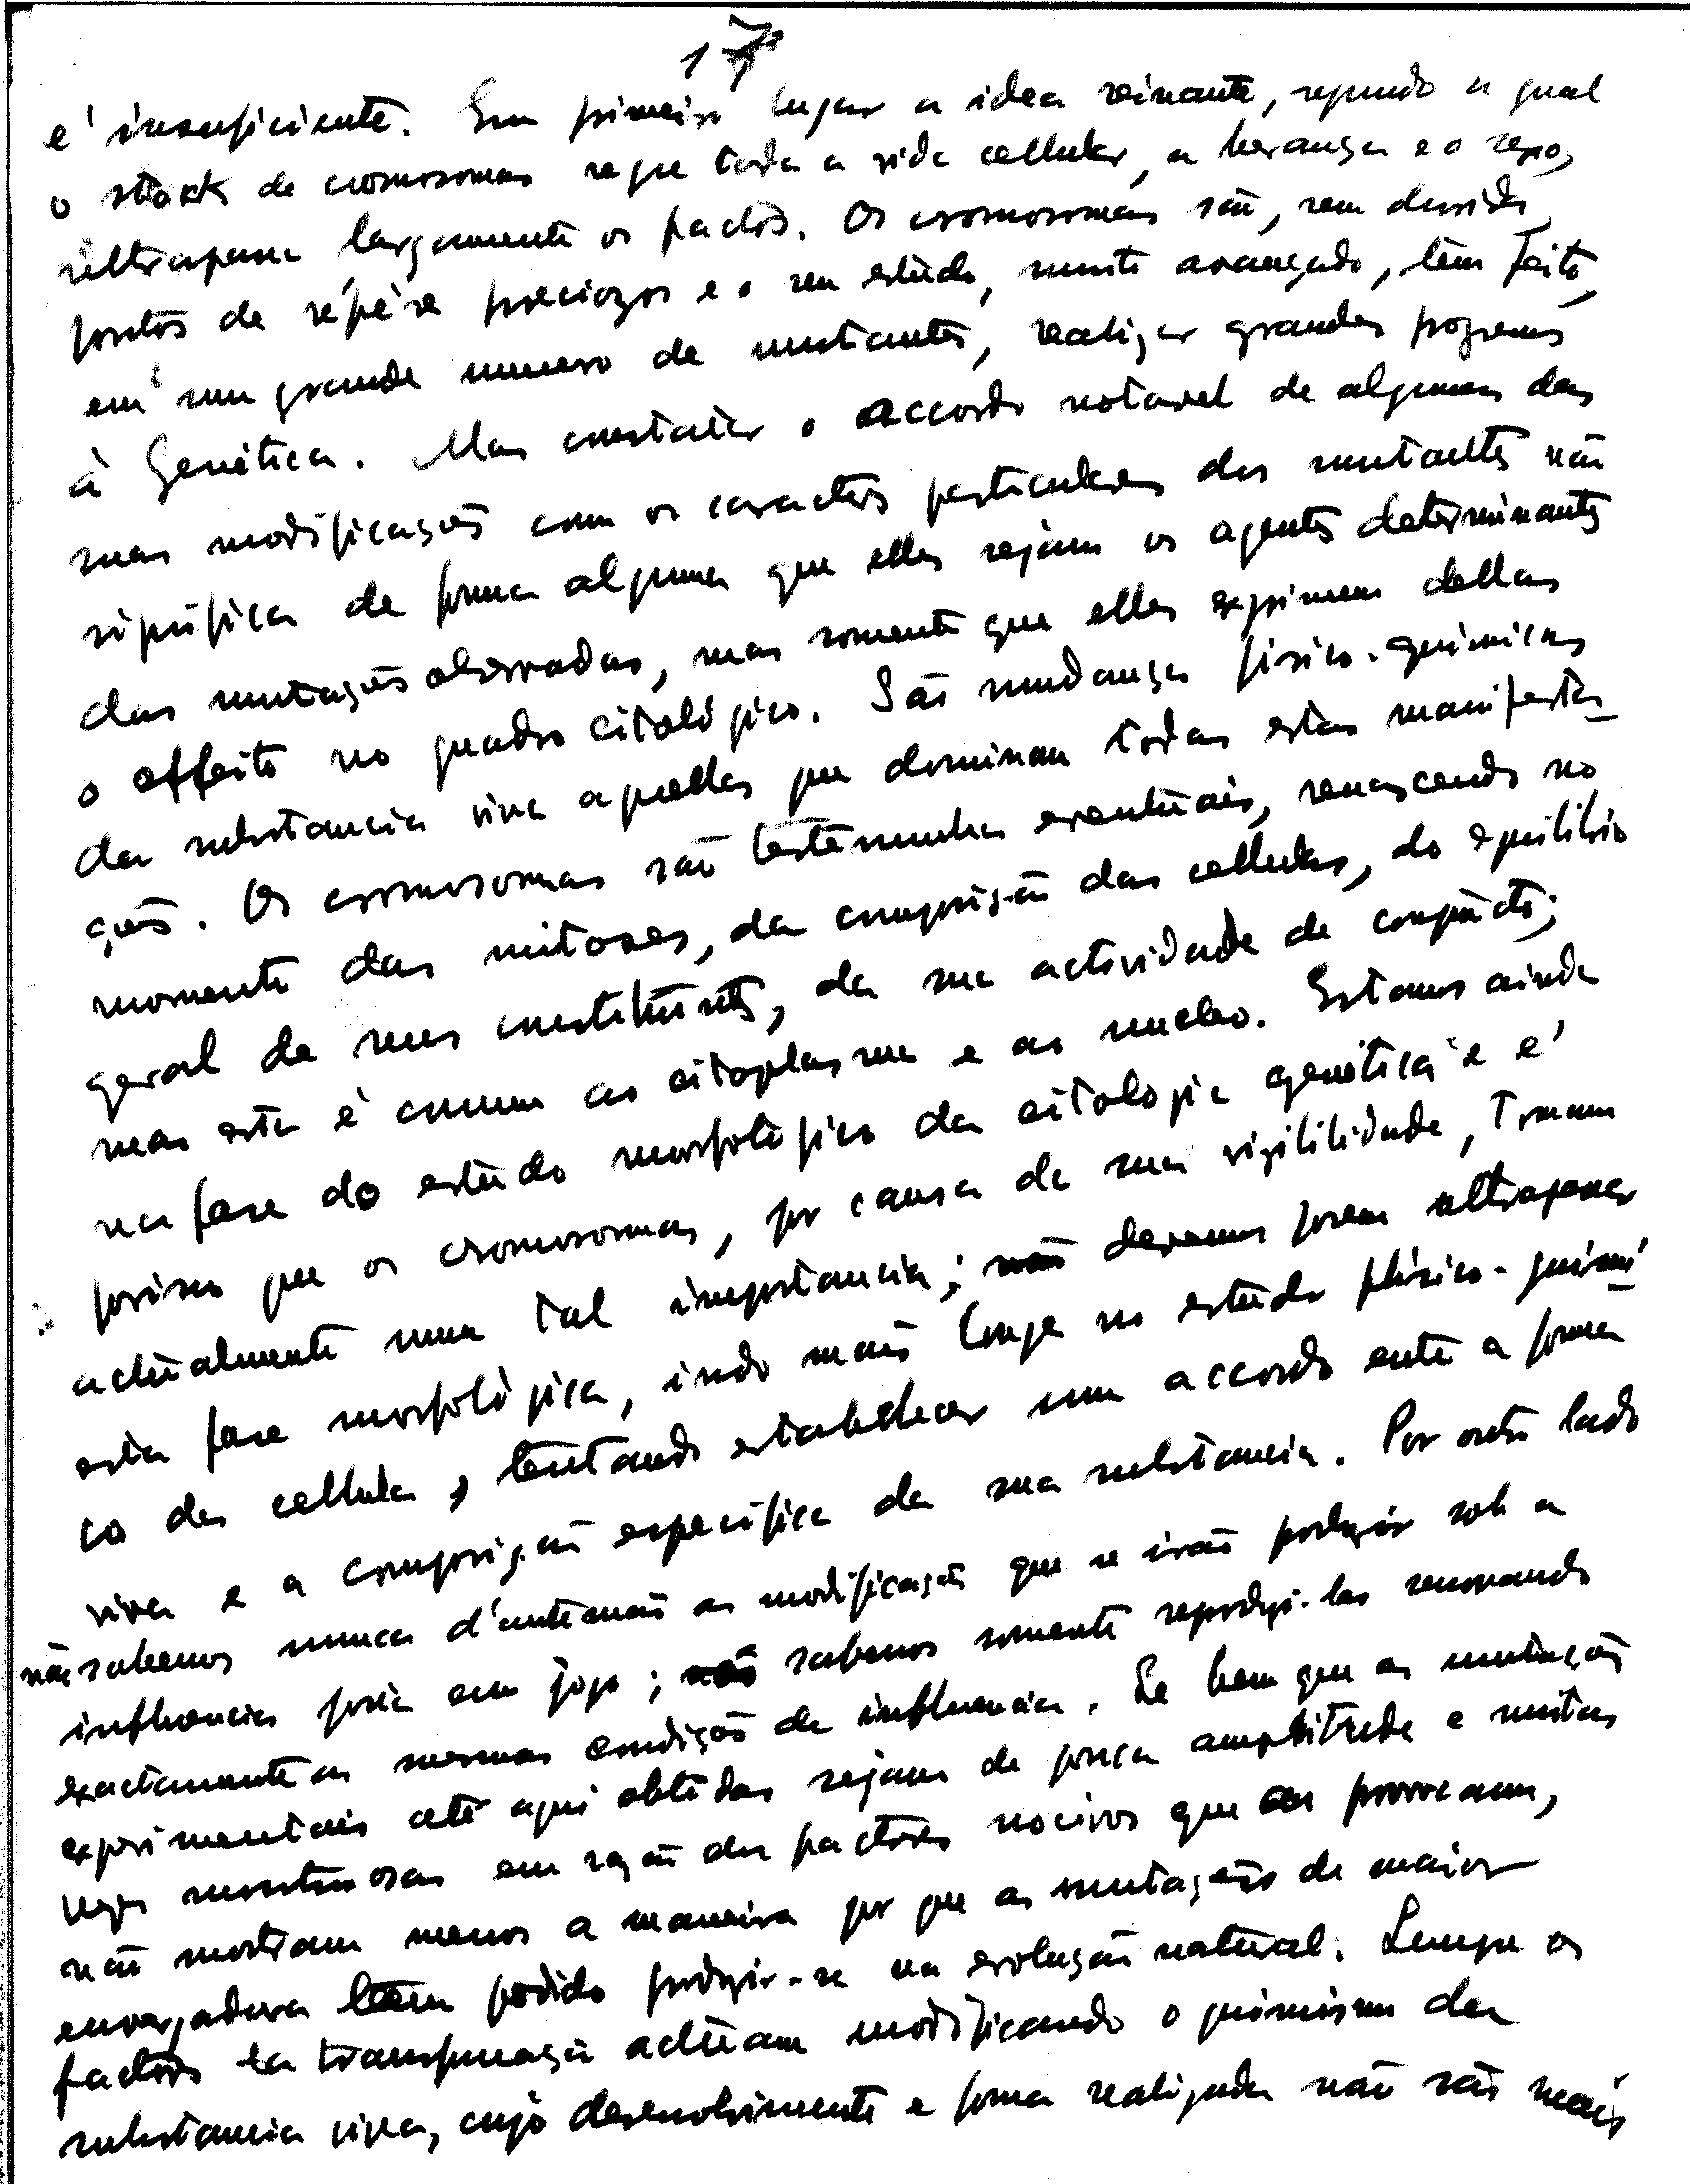 17
é insuficiente. Em primeiro lugar a idea reinante, segundo a qual
o stock de cromosomas rege toda a vida cellular, a herança e o sexo,
ultrapassa largamente os factos. Os cromosomas são, sem duvida,
pontos de répère preciozos e o seu estudo, muito avançado, tem feito,
em um grande numero de mutantes, realizar grandes progressos
à Genética. Mas constatar o accordo notavel de algumas das
suas modificações com os caractéres particulares dos mutantes não
significa de forma alguma que elles sejam os agentes determinantes
das mutações observadas, mas somente que elles exprimem dellas
o effeito no quadro citológico. São mudanças fisico-quimicas
da substancia viva aquellas que dominam todas estas manifesta_
ções. Os cromosomas são testemunhas eventuais, renascendo no
momento das mitoses, da composição das cellulas, do equilibrio
geral de seus constituintes, da sua actividade de conjuncto;
mas esta é comum ao citoplasma e ao nucleo. Estamos ainda
na fase do estudo morfológico da citologia genética e é
porisso que os cromosomas, por causa de sua visibilidade, tomam
actualmente uma tal importancia; não devemos porem ultrapassar
esta fase morfológica, indo mais longe no estudo phisico-quimi_
co da cellula, tentando estabelecer um accordo entre a forma
viva e a composição especifica da sua substancia. Por outro lado
não sabemos nunca d'antemão as modificações que se irão produzir sob a
influencia posta em jogo; não sabemos somente reproduzi-las renovando
exactamente as mesmas condições de influencia. Se bem que as mutações
experimentais até aqui obtidas sejam de pouca amplitude e muitas
vezes monstruosas em razão dos factores nocivos que as provocam,
não mostram menos a maneira por que as mutações de maior
envergadura têem podido produzir-se na evolução natural. Sempre os
factores da transformação actuam modificando o quimismo da
substancia viva, cujo desenvolvimento e forma realizada não são mais